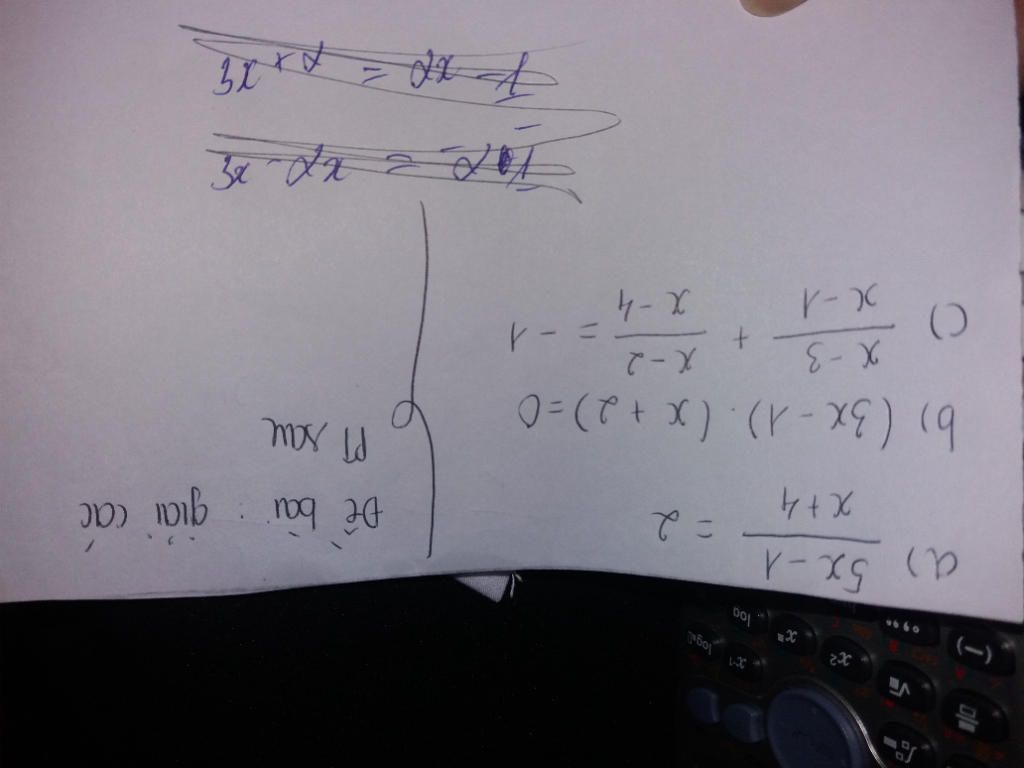 a) (5x - 1)/(x + 4) = 2
b) (3x - 1) . (x + 2) = 0
c) (x - 3)/(x - 1) + (x - 2)/(x - 4) = -1
Đề bài : giải các
PT sau
3x + 2 = 2x - 1
3x - 2x = -2 - 1
(-)
x²
x⁻¹
log